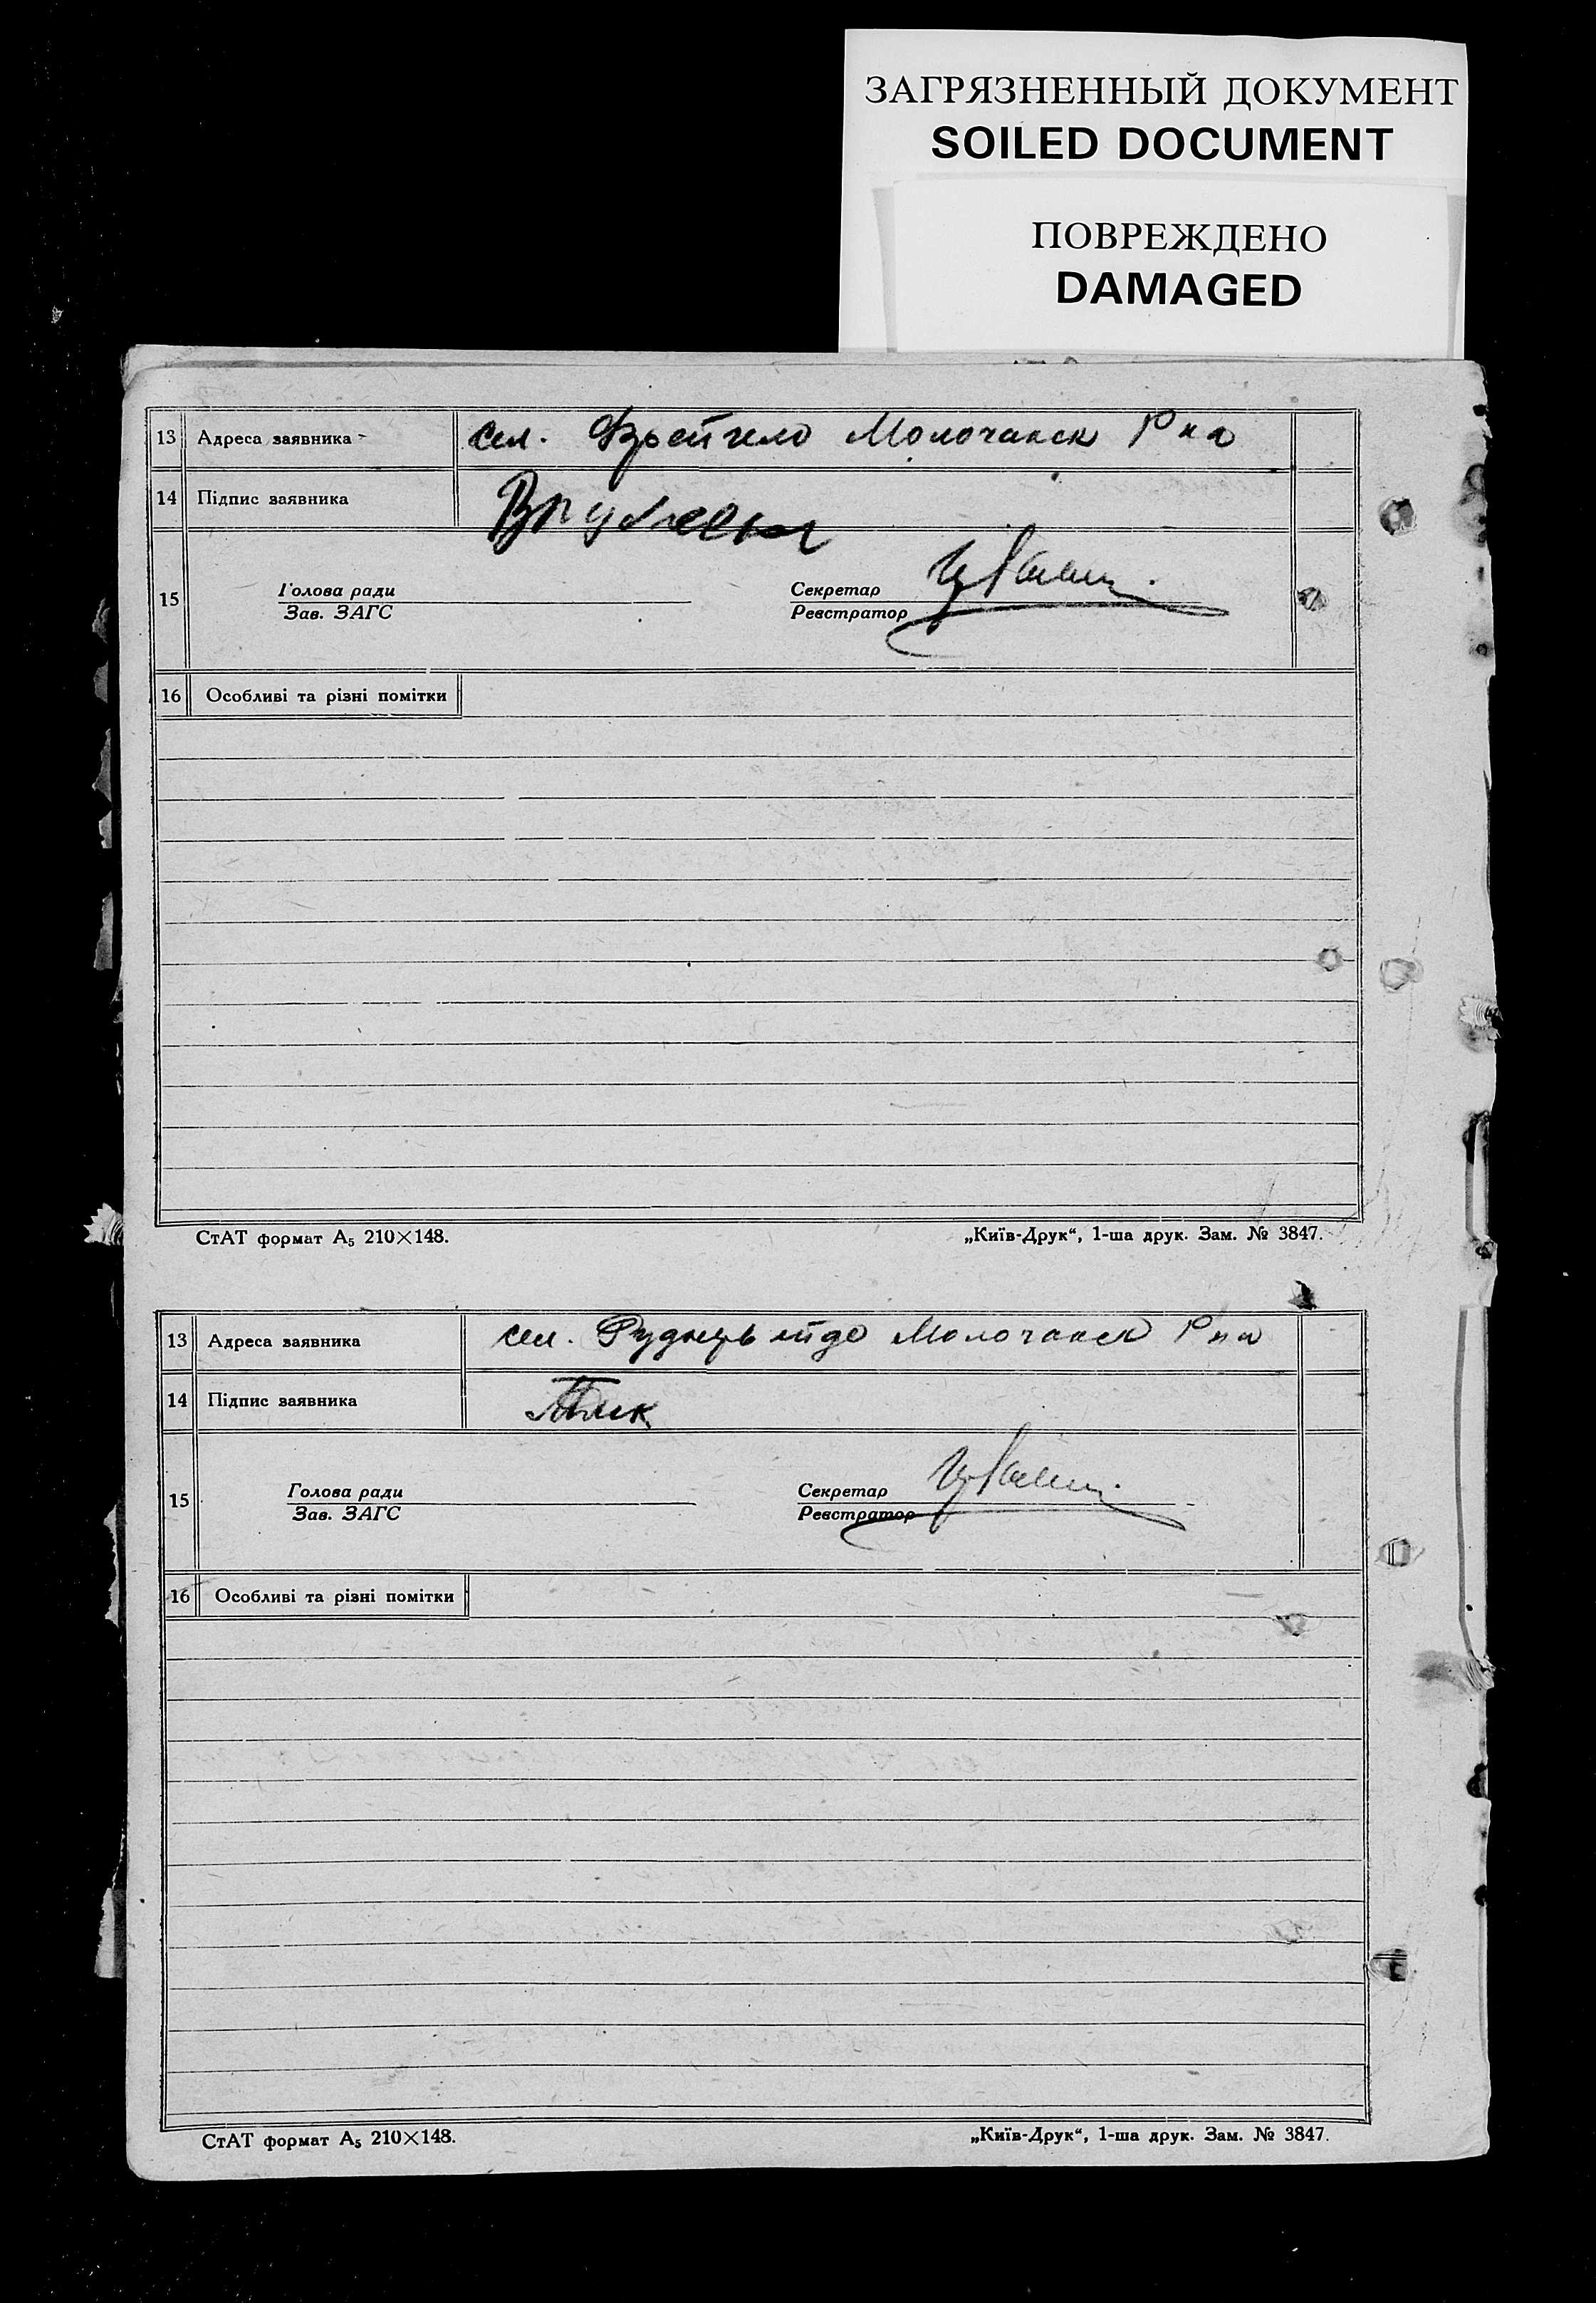 ЗАГРЯЗНЕННЫЙ ДОКУМЕНТ
SOILED DOCUMENT
ПОВРЕЖДЕНО
DAMAGED
13 Адреса заявника сел. Молочанск Р на
14 Підпис заявника
15 Голова ради Секретар
Зав. ЗАГС Реєстратор
16 Особливі та різні помітки
СтАТ формат А₅ 210×148. „Київ-Друк“, 1-ша друк. Зам. № 3847.
13 Адреса заявника сел. Молочанск Р на
14 Підпис заявника
15 Голова ради Секретар
Зав. ЗАГС Реєстратор
16 Особливі та різні помітки
СтАТ формат А₅ 210×148. „Київ-Друк“, 1-ша друк. Зам. № 3847.